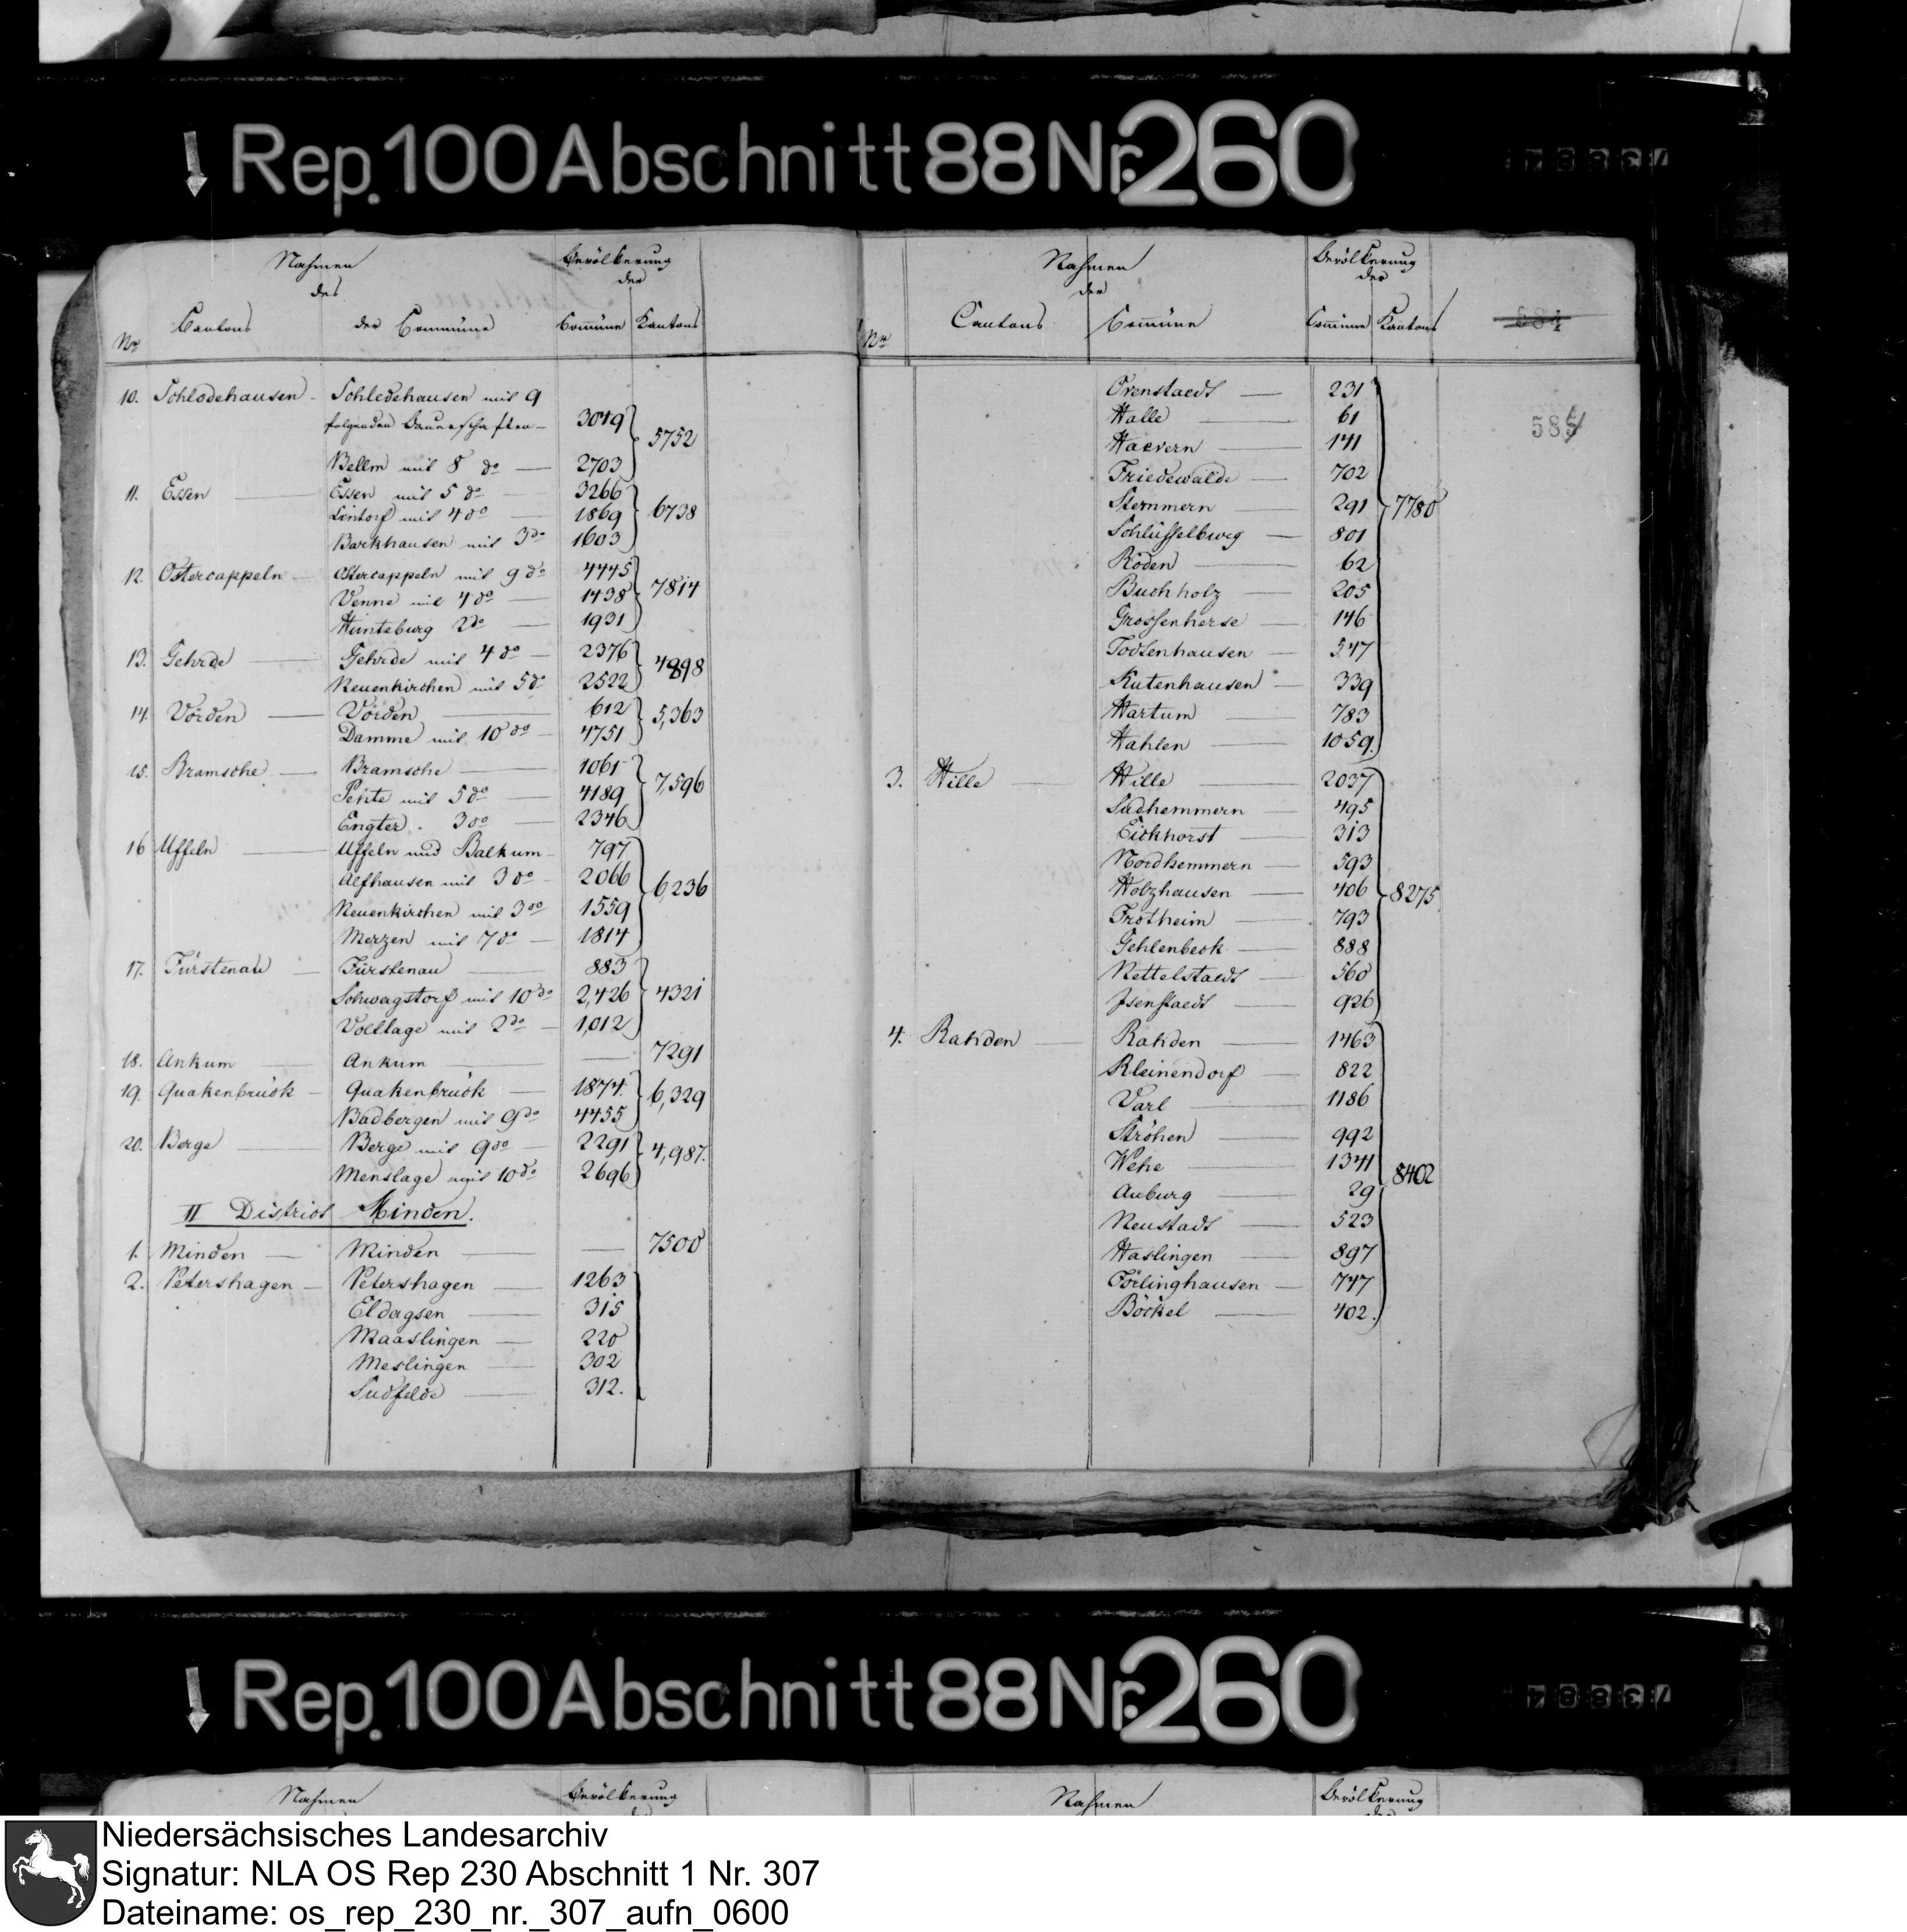 Rep. 100 Abschnitt 88 Nr. 260
Nahmen
des
Cantons
der Commüne
Bevölkerung
der
Commüne Kantons
Nr
10. Schledehausen Schledehausen mit 9
folgenden Bauerschaften 3049 5752
Bellm mit 8 do 2703
11. Essen Essen mit 5 do 3266 6738
Lintorf mit 4 do 1869
Barkhausen mit 3 do 1603
12. Ostercappeln Ostercappeln mit 9 do 4445 7814
Venne mit 4 do 1438
Hunteburg 2 do 1931
13. Gehrde Gehrde mit 4 do 2376 4898
Neuenkirchen mit 5 do 2522
14. Vörden Vörden 612 5,363
Damme mit 10 do 4751
15. Bramsche Bramsche 1061 7,596
Pente mit 5 do 4189
Engter. 3 do 2346
16 Uffeln Uffeln und Balkum 797
Alfhausen mit 3 do 2066 6,236
Neuenkirchen mit 3 do 1559
Merzen mit 7 do 1814
17. Fürstenau Fürstenau 883
Schwagstorf mit 10 do 2,426 4321
Voltlage mit 2 do 1,012
18. Ankum Ankum 7291
19. Quakenbrück Quakenbrück 1874. 6,329
Badbergen mit 9 do 4455
20. Berge Berge mit 9 do 2291 4,987.
Menslage mit 10 do 2696
II District Minden.
1. Minden Minden 7500
2. Petershagen Petershagen 1263
Eldagsen 315
Maaslingen 220
Meslingen 302
Südfelde 312.
Nahmen
der
Cantons
Commüne
Bevölkerung
der
Commüne Kantons
Nr
584
585
Ovenstaedt 231
Halle 61
Haevern 141
Friedewalde 702
Stemmern 291 7780
Schlüsselburg 801
Röden 62
Buchholz 205
Grossenherse 146
Todtenhausen 547
Kutenhausen 339
Hartum 783
Hahlen 1059.
3. Hille Hille 2037
Südhemmern 495
Eickhorst 313
Nordhemmern 593
Holzhausen 406 8275
Frotheim 793
Gehlenbeck 888
Nettelstaedt 560
Isenstaedt 926
4. Rahden Rahden 1463
Kleinendorf 822
Varl 1186
Ströhen 992
Wehe 1341 8402
Auburg 29
Neustadt 523
Haslingen 897
Förlinghausen 747
Böckel 402.
Rep. 100 Abschnitt 88 Nr. 260
Nahmen
Bevölkerung
Nahmen
Bevölkerung
Niedersächsisches Landesarchiv
Signatur: NLA OS Rep 230 Abschnitt 1 Nr. 307
Dateiname: os_rep_230_nr._307_aufn_0600